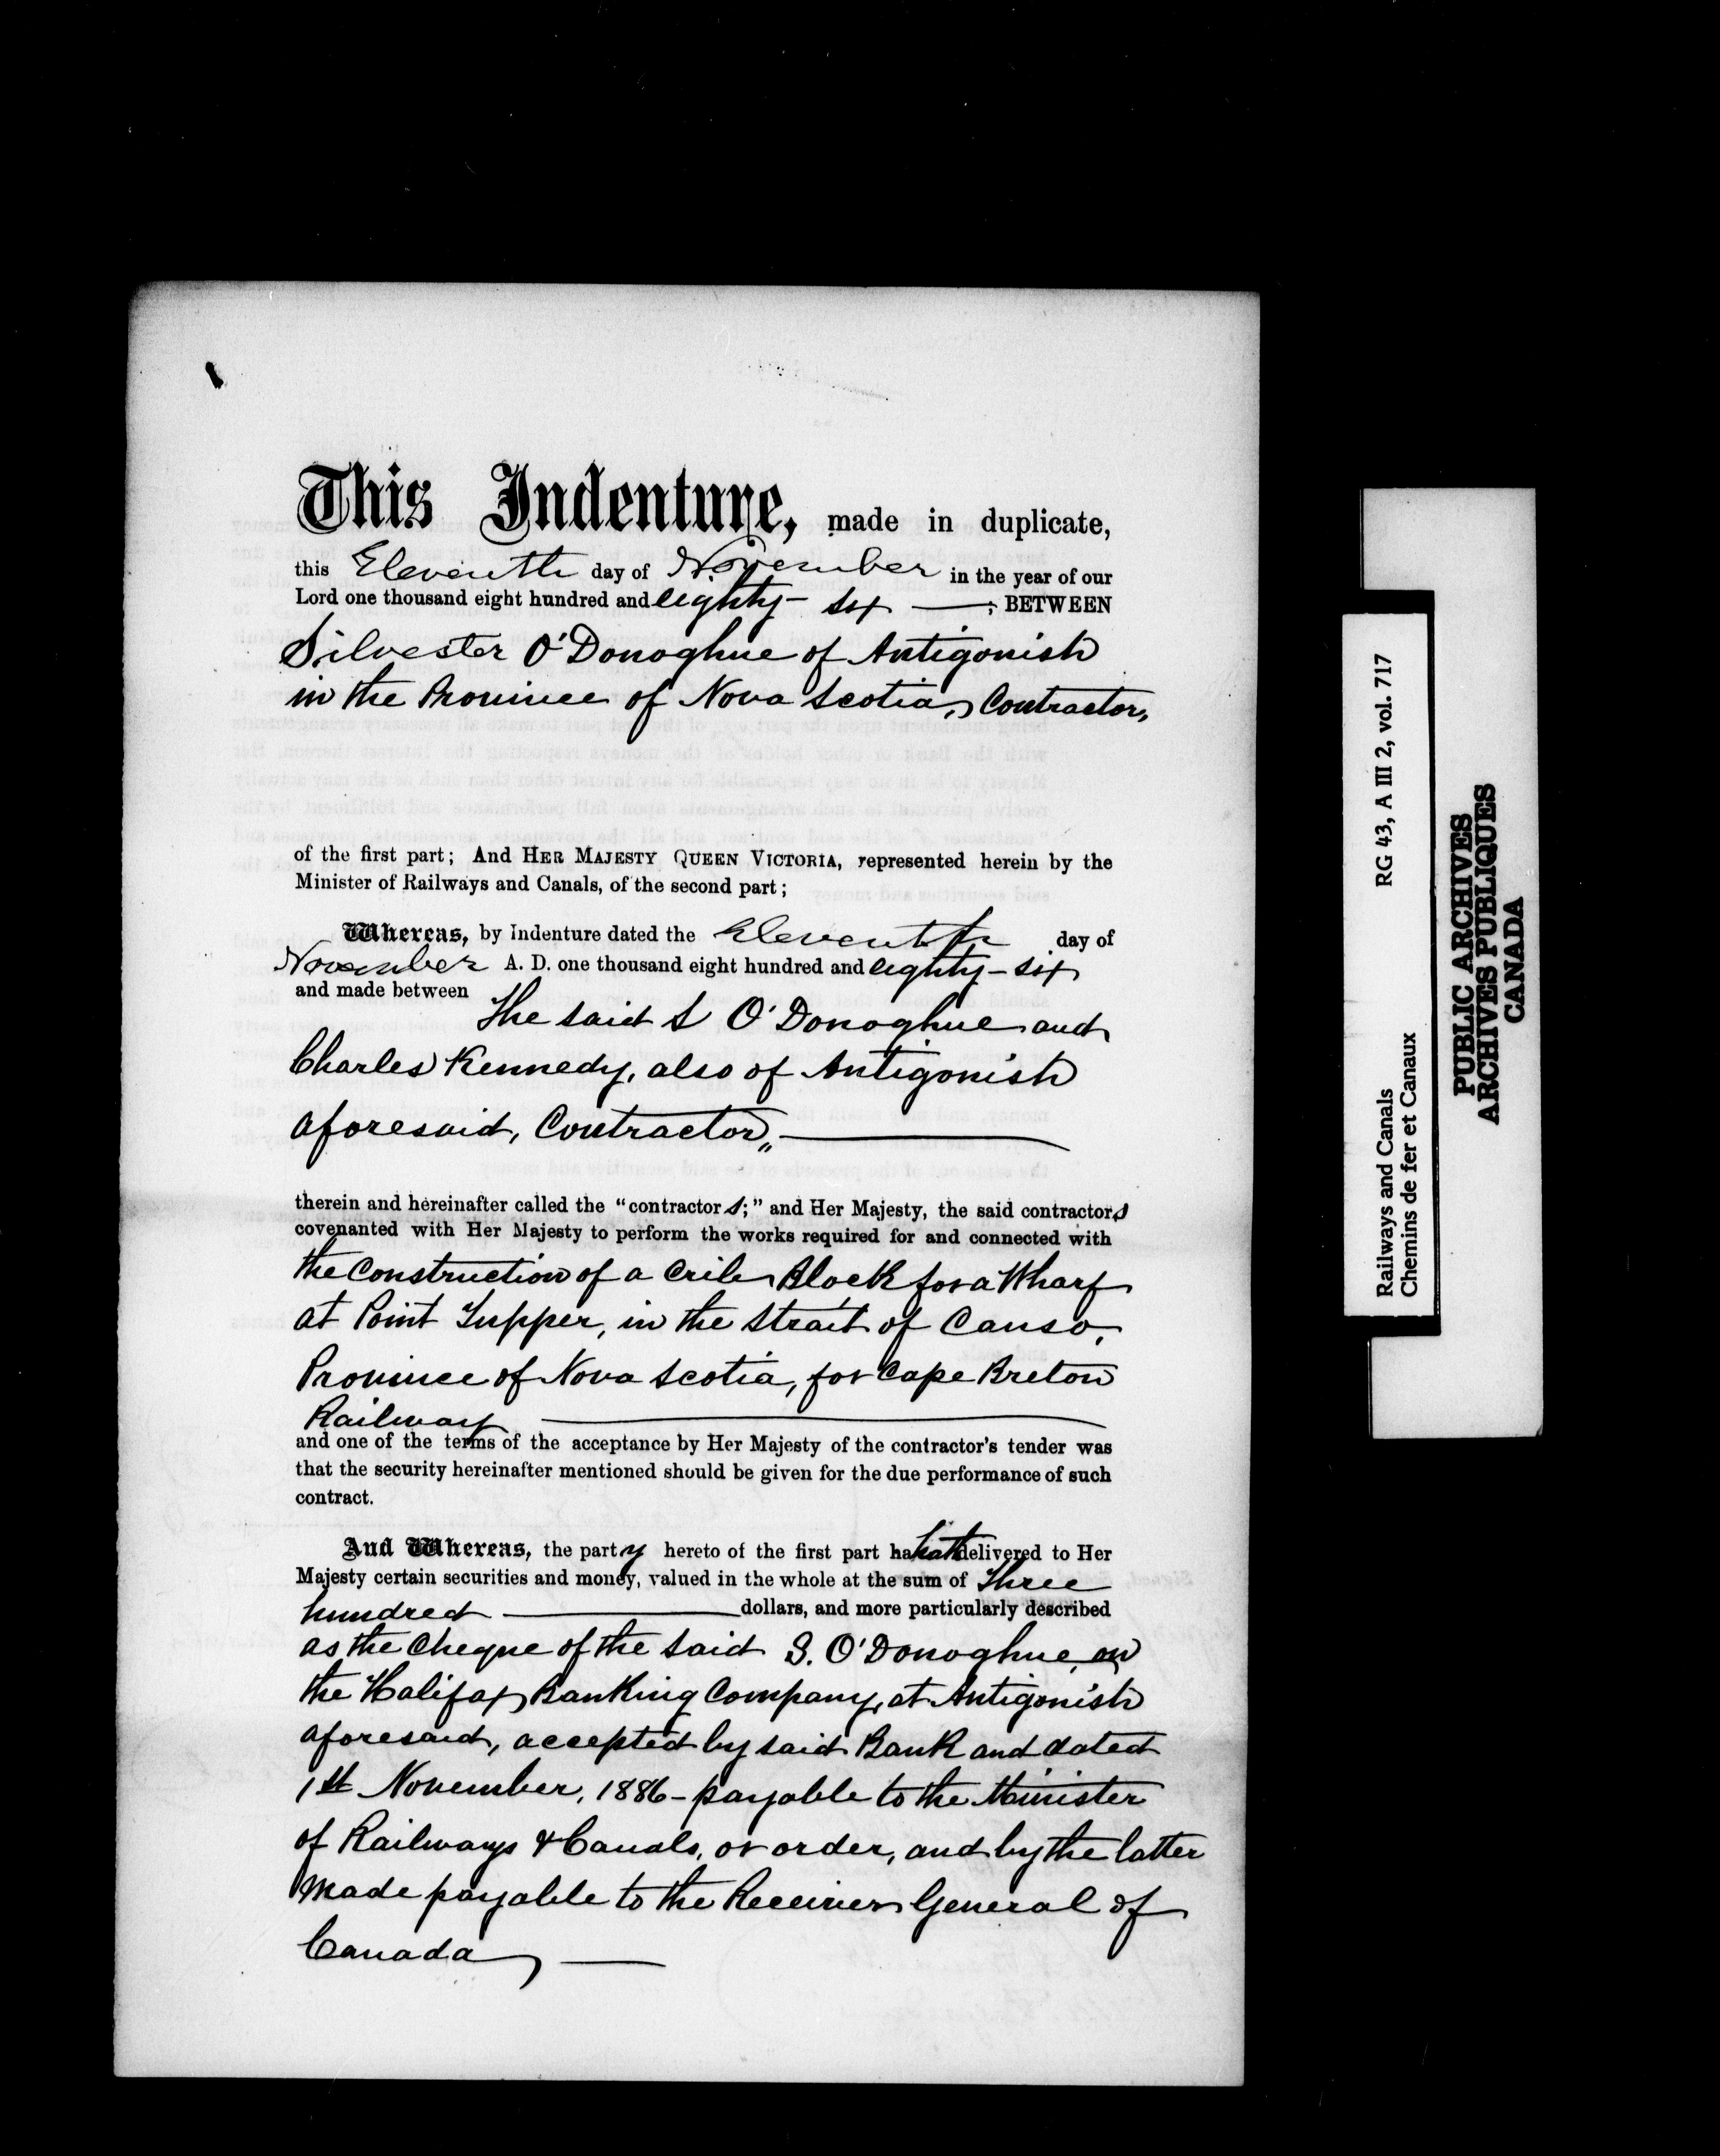 This Indenture, made in duplicate,
this Eleventh day of November in the year of our
Lord one thousand eight hundred and eighty-six ; BETWEEN
Silvester O'Donoghue of Antigonish
in the Province of Nova Scotia, Contractor,
of the first part; And HER MAJESTY QUEEN VICTORIA, represented herein by the
Minister of Railways and Canals, of the second part;
Whereas, by Indenture dated the Eleventh day of
November A. D. one thousand eight hundred and eighty-six
and made between
The said S O'Donoghue and
Charles Kennedy, also of Antigonish
aforesaid, Contractor,
therein and hereinafter called the "contractors;" and Her Majesty, the said contractors
covenanted with Her Majesty to perform the works required for and connected with
the Construction of a Crib Block for a Wharf
at Point Tupper, in the Strait of Canso,
Province of Nova Scotia, for Cape Breton
Railway
and one of the terms of the acceptance by Her Majesty of the contractor's tender was
that the security hereinafter mentioned should be given for the due performance of such
contract.
And Whereas, the party hereto of the first part ha hath delivered to Her
Majesty certain securities and money, valued in the whole at the sum of Three
hundred dollars, and more particularly described
as the Cheque of the said S. O'Donoghue, on
the Halifax Banking Company, at Antigonish
aforesaid, accepted by said Bank and dated
1st November, 1886 - payable to the Minister
of Railways & Canals, or order, and by the latter
made payable to the Receiver General of
Canada,
Railways and Canals RG 43, A III 2, vol. 717
Chemins de fer et Canaux
PUBLIC ARCHIVES
ARCHIVES PUBLIQUES
CANADA